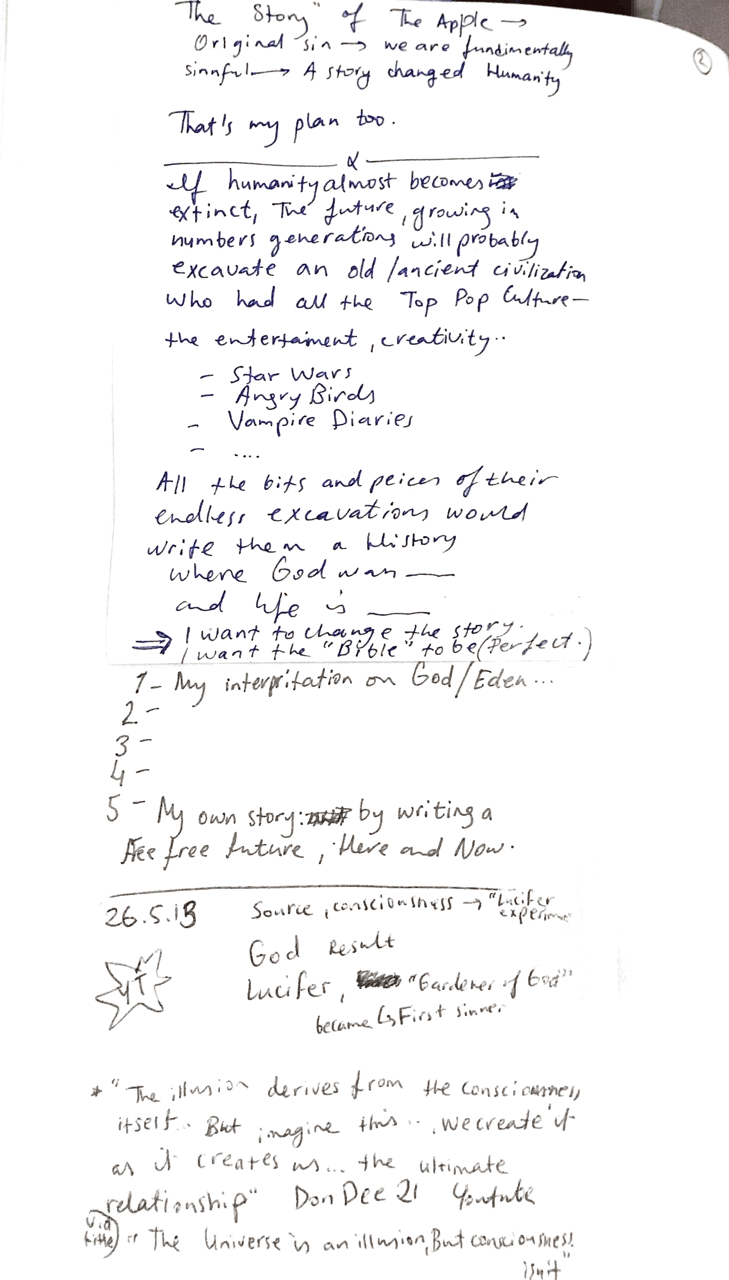 The "Story" of The Apple →
Original sin → we are fundimentally
sinnful → A story changed Humanity
2
That's my plan too.
α
If humanity almost becomes
extinct, The future, growing in
numbers generations will probably
excavate an old/ancient civilization
who had all the Top Pop Culture -
the entertaiment, creativity..
- Star Wars
- Angry Birds
- Vampire Diaries
- ....
All the bits and peices of their
endless excavations would
write them a History
where God was ___
and life is ___
⇒ I want to change the story.
I want the "Bible" to be (Perfect.)
1- My interpritation on God/Eden...
2-
3-
4-
5- My own story: by writing a
free future, Here and Now.
26.5.13 Source, consciousness → "Lucifer
experime
God Result
YT
Lucifer, "Gardener of God"
became ↳ First sinner
* "The illusion derives from the consciousness,
itself.. But imagine this... we create it
as it creates us... the ultimate
relationship" Don Dee 21 Youtute
Vid
title " The Universe is an illusion, But consciousness!
isn't"